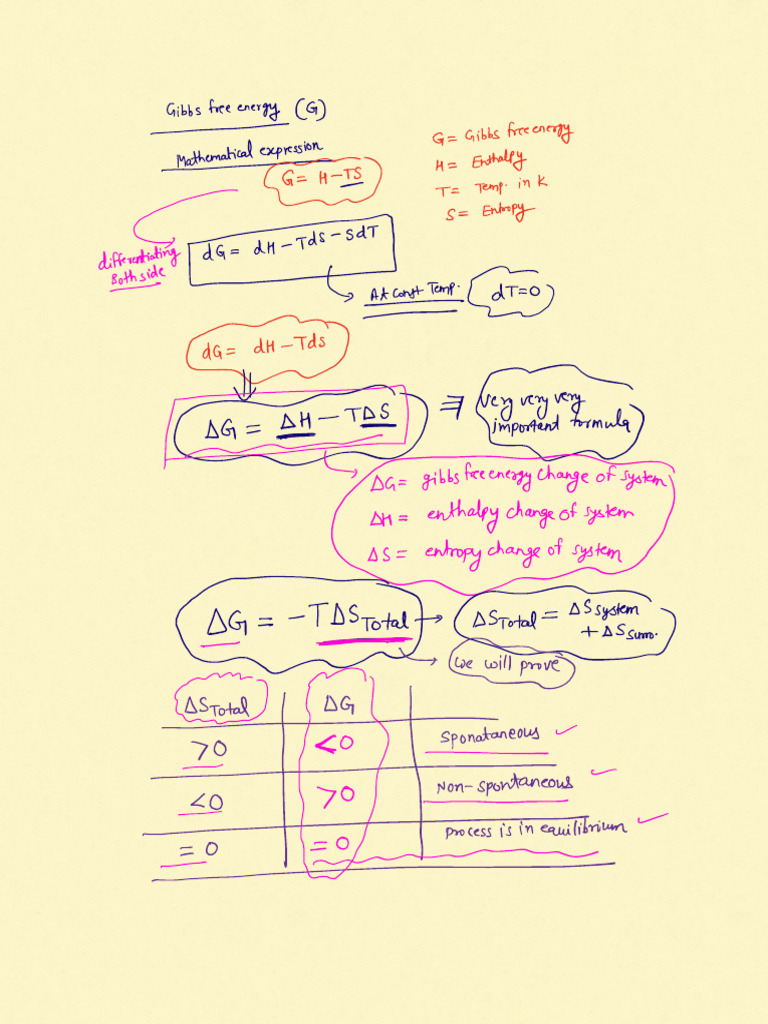 Gibbs free energy (G)
Mathematical expression
G = H - TS
G = Gibbs free energy
H = Enthalpy
T = Temp. in K
S = Entropy
differentiating
Both side
dG = dH - Tds - SdT
At Const Temp.
dT = 0
dG = dH - Tds
ΔG = ΔH - TΔS
Very very very
important formula
ΔG = gibbs free energy change of system
ΔH = enthalpy change of system
ΔS = entropy change of system
ΔG = -TΔSTotal → ΔSTotal = ΔSsystem
+ ΔSsurro.
we will prove
ΔSTotal ΔG
>0 <0 Sponataneous
<0 >0 Non-spontaneous
= 0 = 0 process is in equilibrium